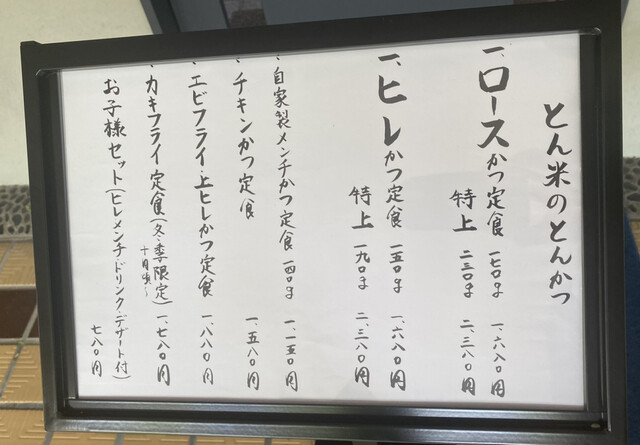 とん米のとんかつ
一、ロースかつ定食 一七〇g 一、六八〇円
特上 二三〇g 二、三八〇円
一、ヒレかつ定食 一五〇g 一、六八〇円
特上 一九〇g 二、三八〇円
・自家製メンチかつ定食 一四〇g 一、一五〇円
・チキンかつ定食 一、五八〇円
・エビフライ・上ヒレかつ定食 一、八八〇円
・カキフライ定食(冬季限定) 一、七八〇円
十月頃〜
お子様セット(ヒレメンチ・ドリンク・デザート付) 七八〇円